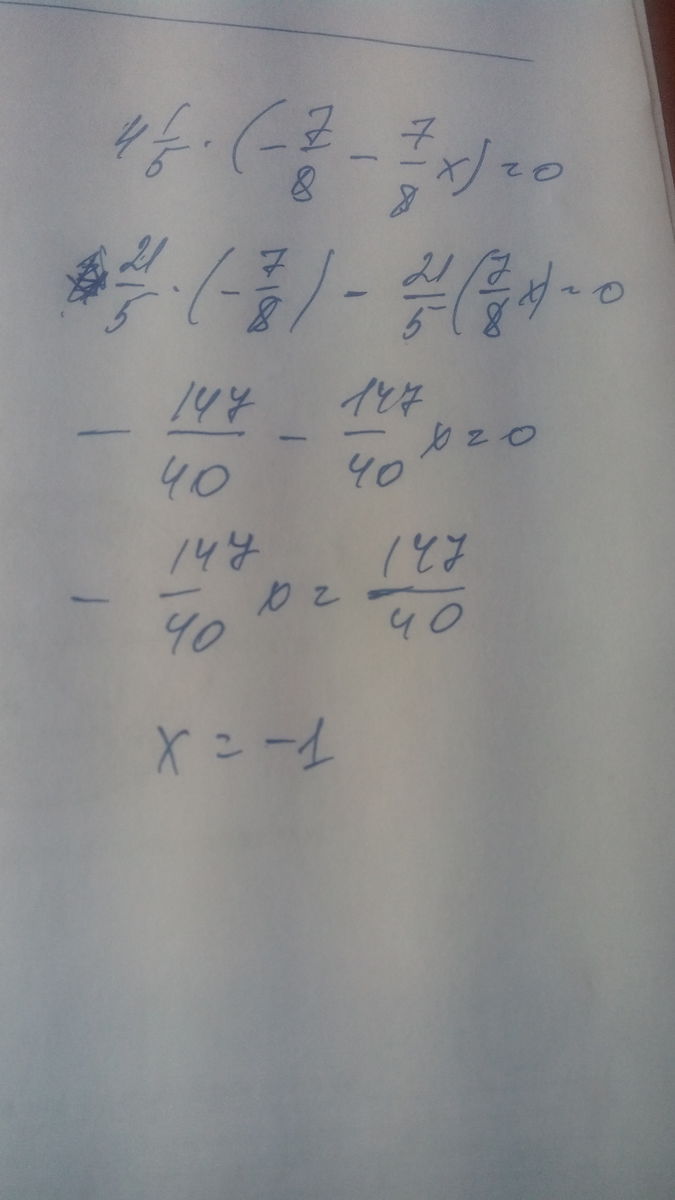 4 1/5 · (- 7/8 - 7/8 x) = 0
21/5 · (- 7/8) - 21/5 (7/8 x) = 0
- 147/40 - 147/40 x = 0
- 147/40 x = 147/40
x = -1